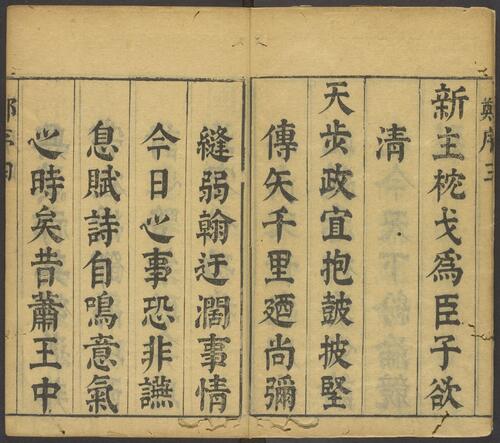 新主枕戈為臣子欲
清
天步政宜抱鼓披堅
傳矢千里廼尚彌
縫弱翰迂濶事情
今日㞢事恐非讌
息賦詩自鳴意氣
㞢時矣昔蕭王中
鄭序三